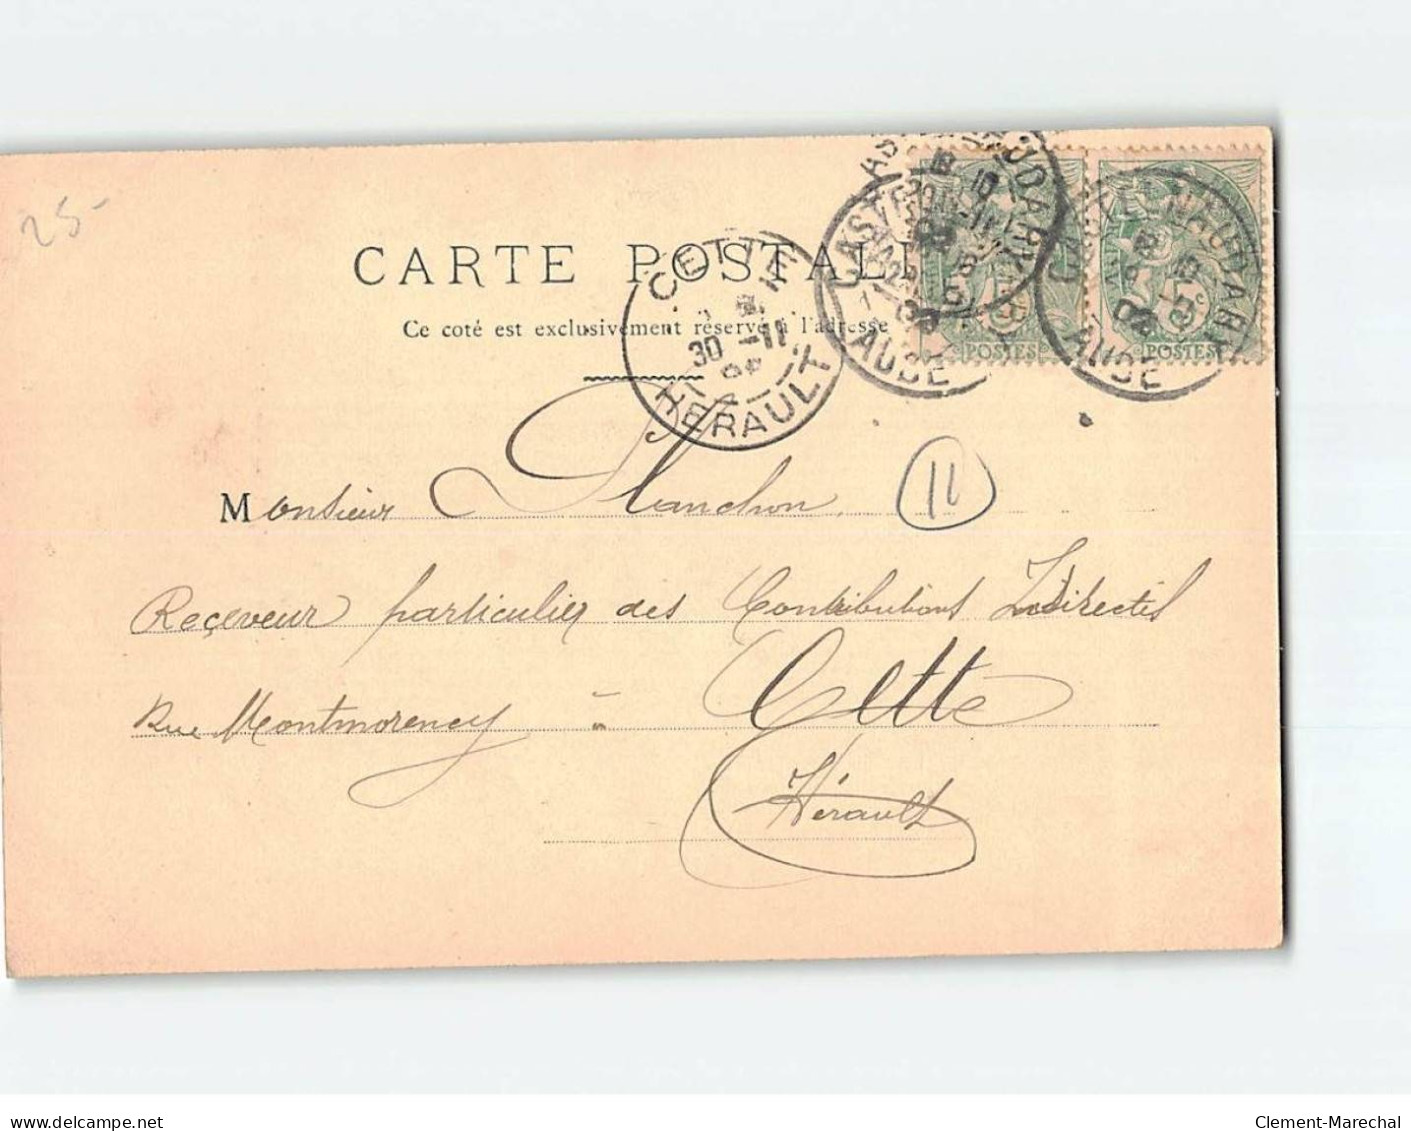 25-
CARTE POSTALE
Ce coté est exclusivement réservé à l'adresse
CETTE
30 -11
HERAULT
CASTELNAUDARY
AUDE
POSTES
CASTELNAUDARY
AUDE
POSTES
11
Monsieur Planchon
Receveur particulier des Contributions Indirectes
Rue Montmorency à Cette
Hérault
www.delcampe.net
Clement-Marechal